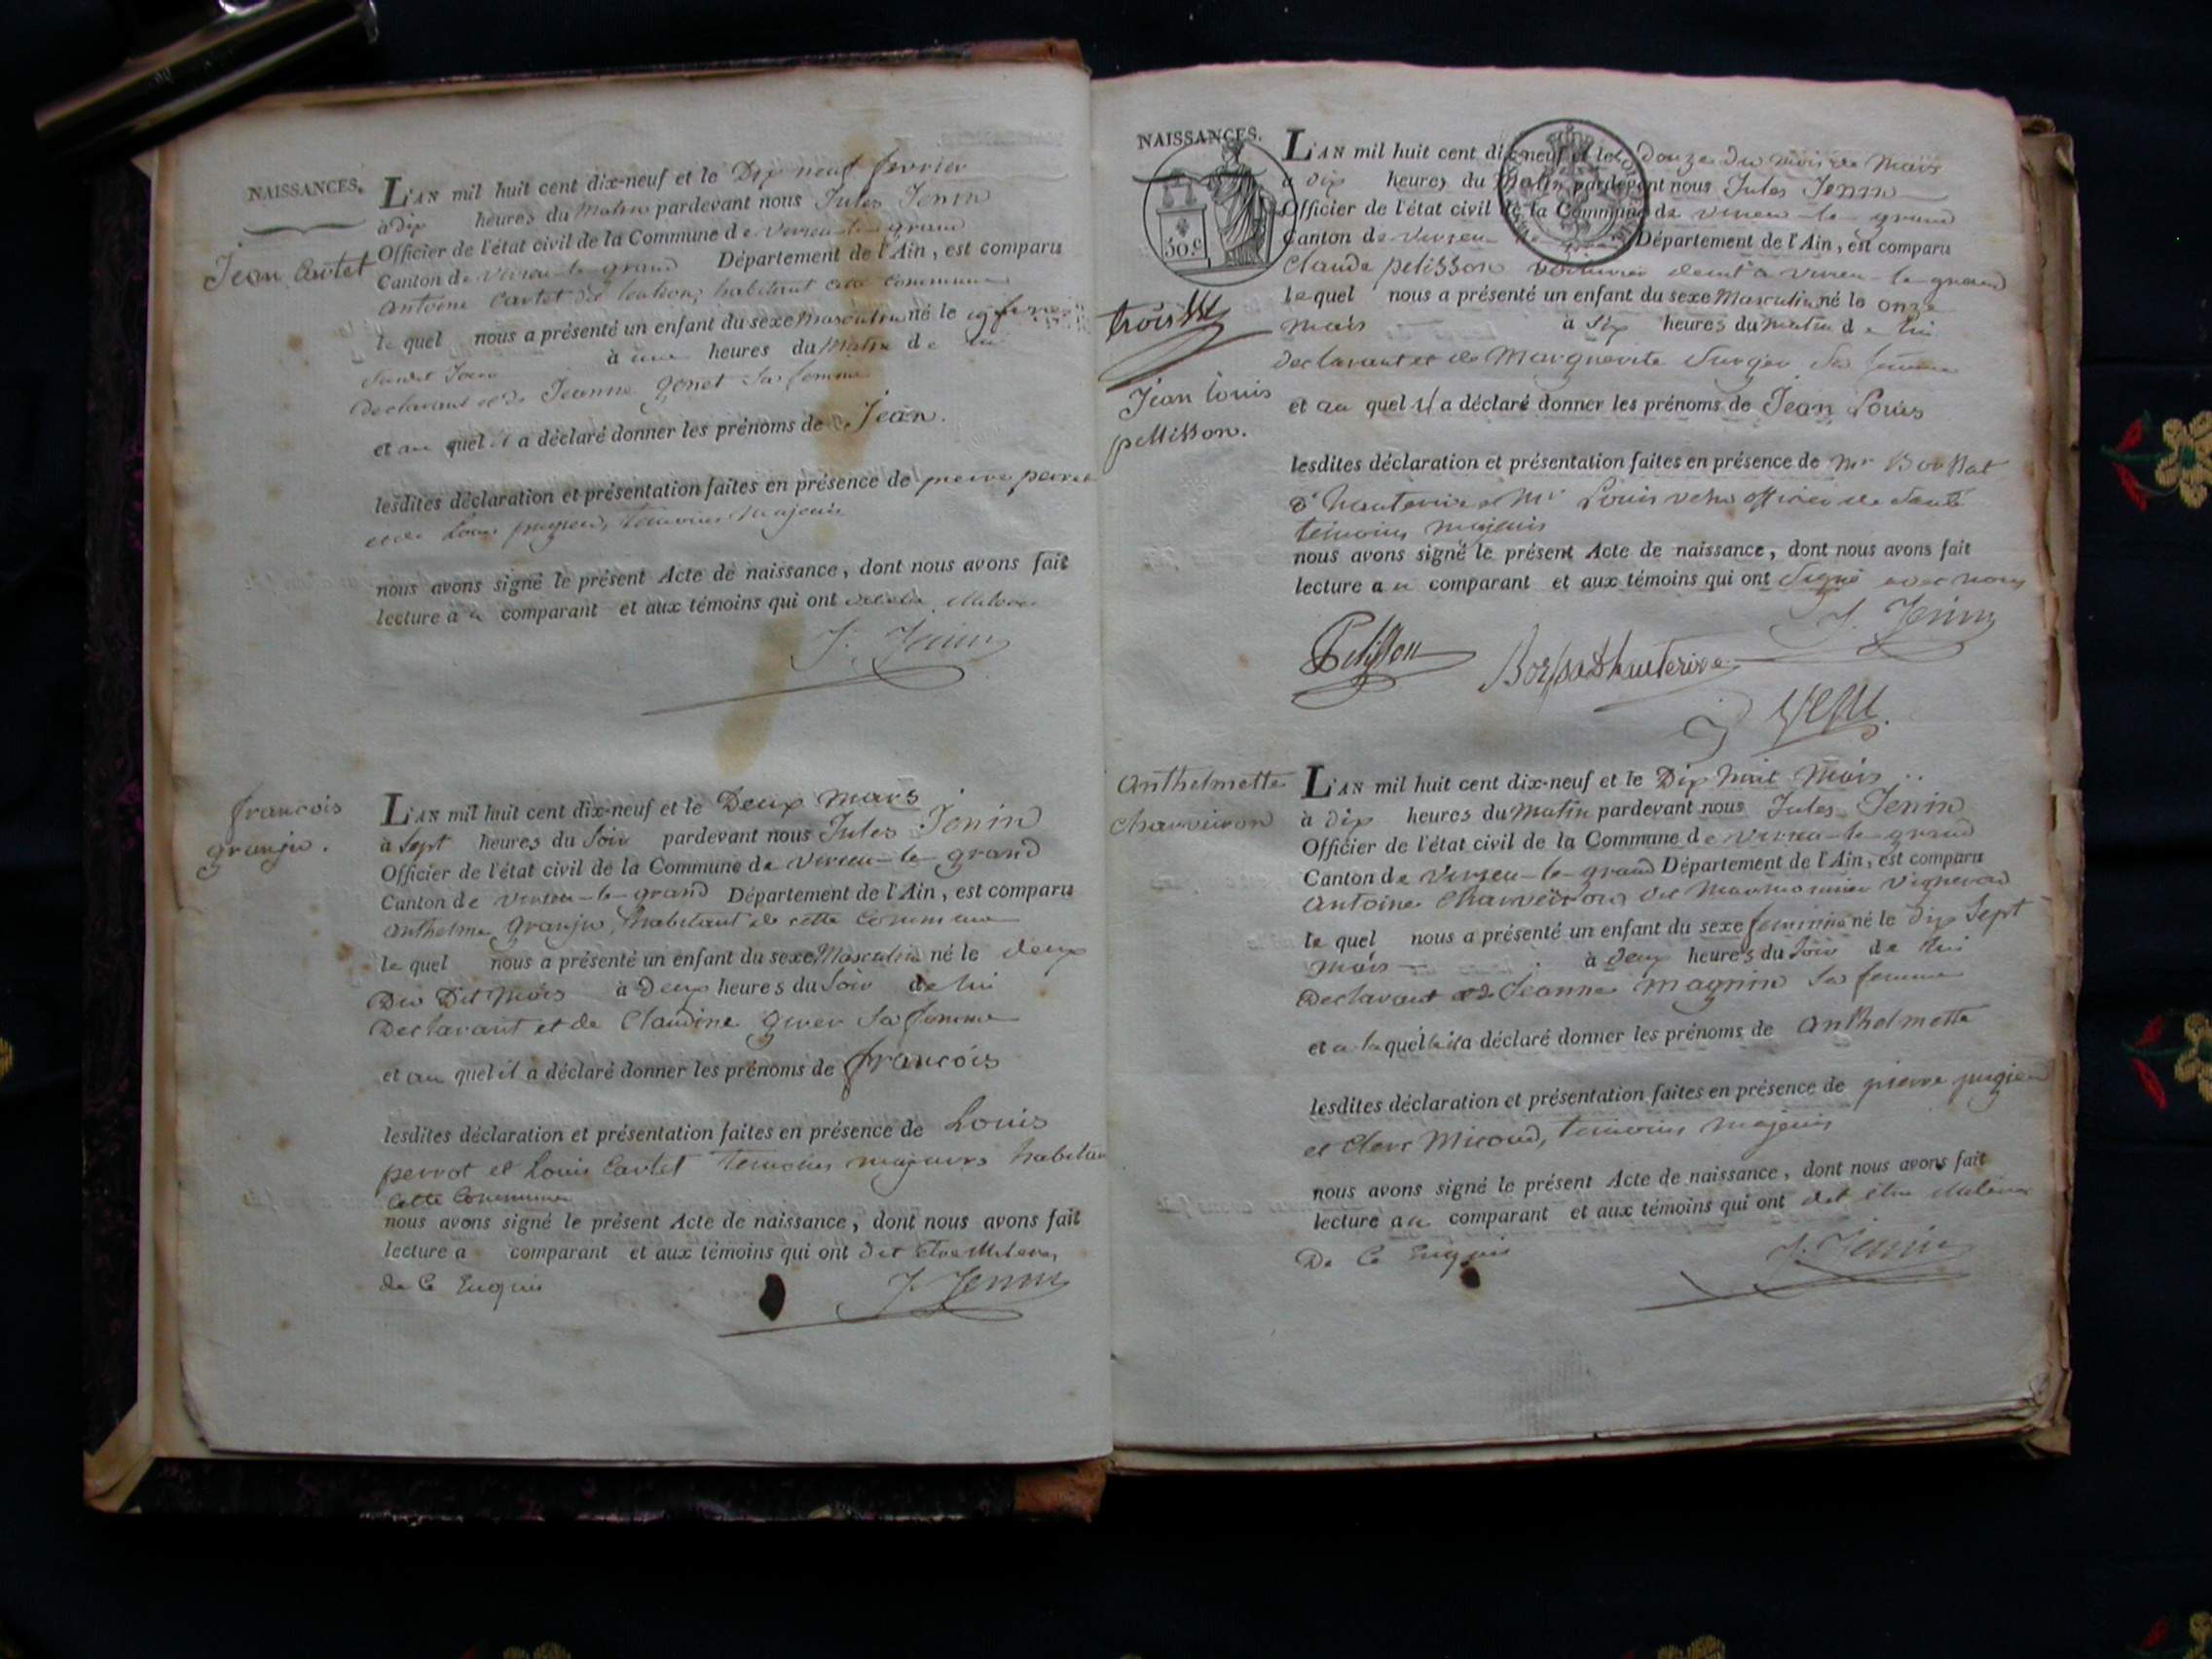 NAISSANCES.
Jean Cartet
L'AN mil huit cent dix-neuf et le Dix neuf fevrier
à dix heures du Matin pardevant nous Jules Jenin
Officier de l'état civil de la Commune de virieu-le-grand
Canton de virieu-le-grand Département de l'Ain, est comparu
antoine Cartet dit habitant cette commune
le quel nous a présenté un enfant du sexe Masculin né le 19 fevrier
à une heures du Matin de lui
Declarant et de Jeanne gonet Sa femme
et au quel il a déclaré donner les prénoms de Jean.
lesdites déclaration et présentation faites en présence de pierre perret
et de Louis pugieu, temoins Majeurs
nous avons signé le présent Acte de naissance, dont nous avons fait
lecture a u comparant et aux témoins qui ont
J. Jenin
francois
granju.
L'AN mil huit cent dix-neuf et le Deux mars
à Sept heures du Soir pardevant nous Jules Jenin
Officier de l'état civil de la Commune de virieu-le-grand
Canton de virieu-le-grand Département de l'Ain, est comparu
anthelme granju, habitant de cette Commune
le quel nous a présenté un enfant du sexe Masculin né le deux
Du Dit Mois à Deux heures du Soir de lui
Declarant et de Claudine Sa femme
et au quel il a déclaré donner les prénoms de francois
lesdites déclaration et présentation faites en présence de Louis
perrot et Louis Cartet Temoins majeurs habitan
Cette Commune
nous avons signé le présent Acte de naissance, dont nous avons fait
lecture a comparant et aux témoins qui ont dit être illiteres
de Ce Enquis
J. Jenin
NAISSANCES.
50.c
trois
Jean Louis
pellisson.
L'AN mil huit cent dix-neuf et le Douze du mois de Mars
à dix heures du Matin pardevant nous Jules Jenin
Officier de l'état civil de la Commune de virieu-le-grand
Canton de virieu Département de l'Ain, est comparu
Claude pelisson voiturier demt a virieu-le-grand
le quel nous a présenté un enfant du sexe Masculin né le onze
mars à Six heures du matin de lui
declarant et de Marguerite Surger Sa femme
et au quel il a déclaré donner les prénoms de Jean Louis
lesdites déclaration et présentation faites en présence de mr Borssat
d'hauterive et Mr Louis officier de Santé
temoins majeurs
nous avons signé le présent Acte de naissance, dont nous avons fait
lecture a u comparant et aux témoins qui ont Signé avec nous
J. Jenin
Pelisson
Borssatdhauterive
Anthelmette
Charveüron
L'AN mil huit cent dix-neuf et le Dix huit Mars
à dix heures du Matin pardevant nous Jules Jenin
Officier de l'état civil de la Commune de virieu-le-grand
Canton de virieu-le-grand Département de l'Ain, est comparu
antoine Charveüron dit vigneron
le quel nous a présenté un enfant du sexe feminin né le dix Sept
mars à deux heures du Soir de lui
Declarant et de Jeanne magnin Sa femme
et a la quelle il a déclaré donner les prénoms de anthelmette
lesdites déclaration et présentation faites en présence de pierre pugieu
et Clerc Micoud, temoins majeurs
nous avons signé le présent Acte de naissance, dont nous avons fait
lecture au comparant et aux témoins qui ont dit être illiteres
De Ce Enquis
J. Jenin